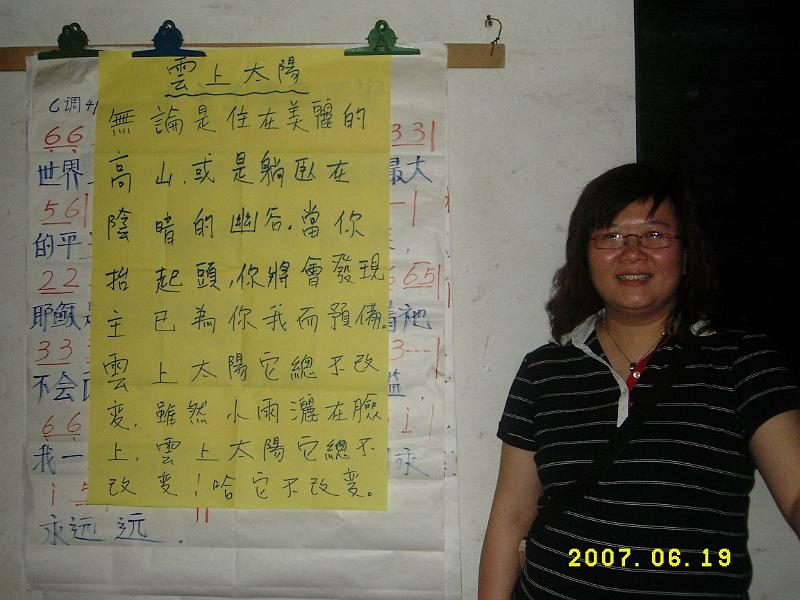 雲上太陽
無論是住在美麗的
高山,或是躺臥在
陰暗的幽谷.當你
抬起頭,你將會發現
主已為你我而預備。
雲上太陽它總不改
變,雖然小雨灑在臉
上,雲上太陽它總不
改變!哈它不改變。
C调4/
66
331
世界
最大
561
-1
的平
22
665
耶稣
祂
33
3---
不会
66
i1
我一
永
i 5
永远远.
2007.06.19